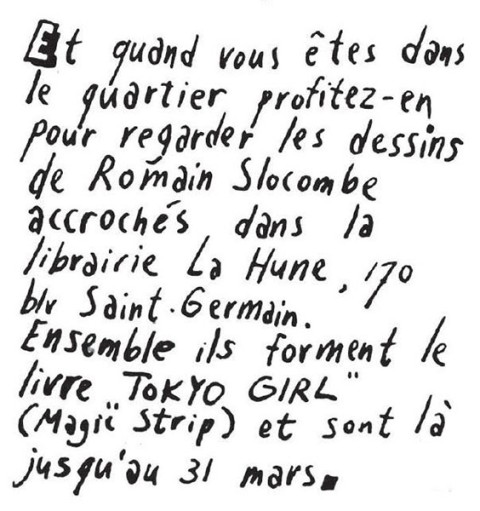 Et quand vous êtes dans
le quartier profitez-en
pour regarder les dessins
de Romain Slocombe
accrochés dans la
librairie La Hune, 170
blv Saint-Germain.
Ensemble ils forment le
livre "TOKYO GIRL"
(Magic Strip) et sont là
jusqu'au 31 mars.